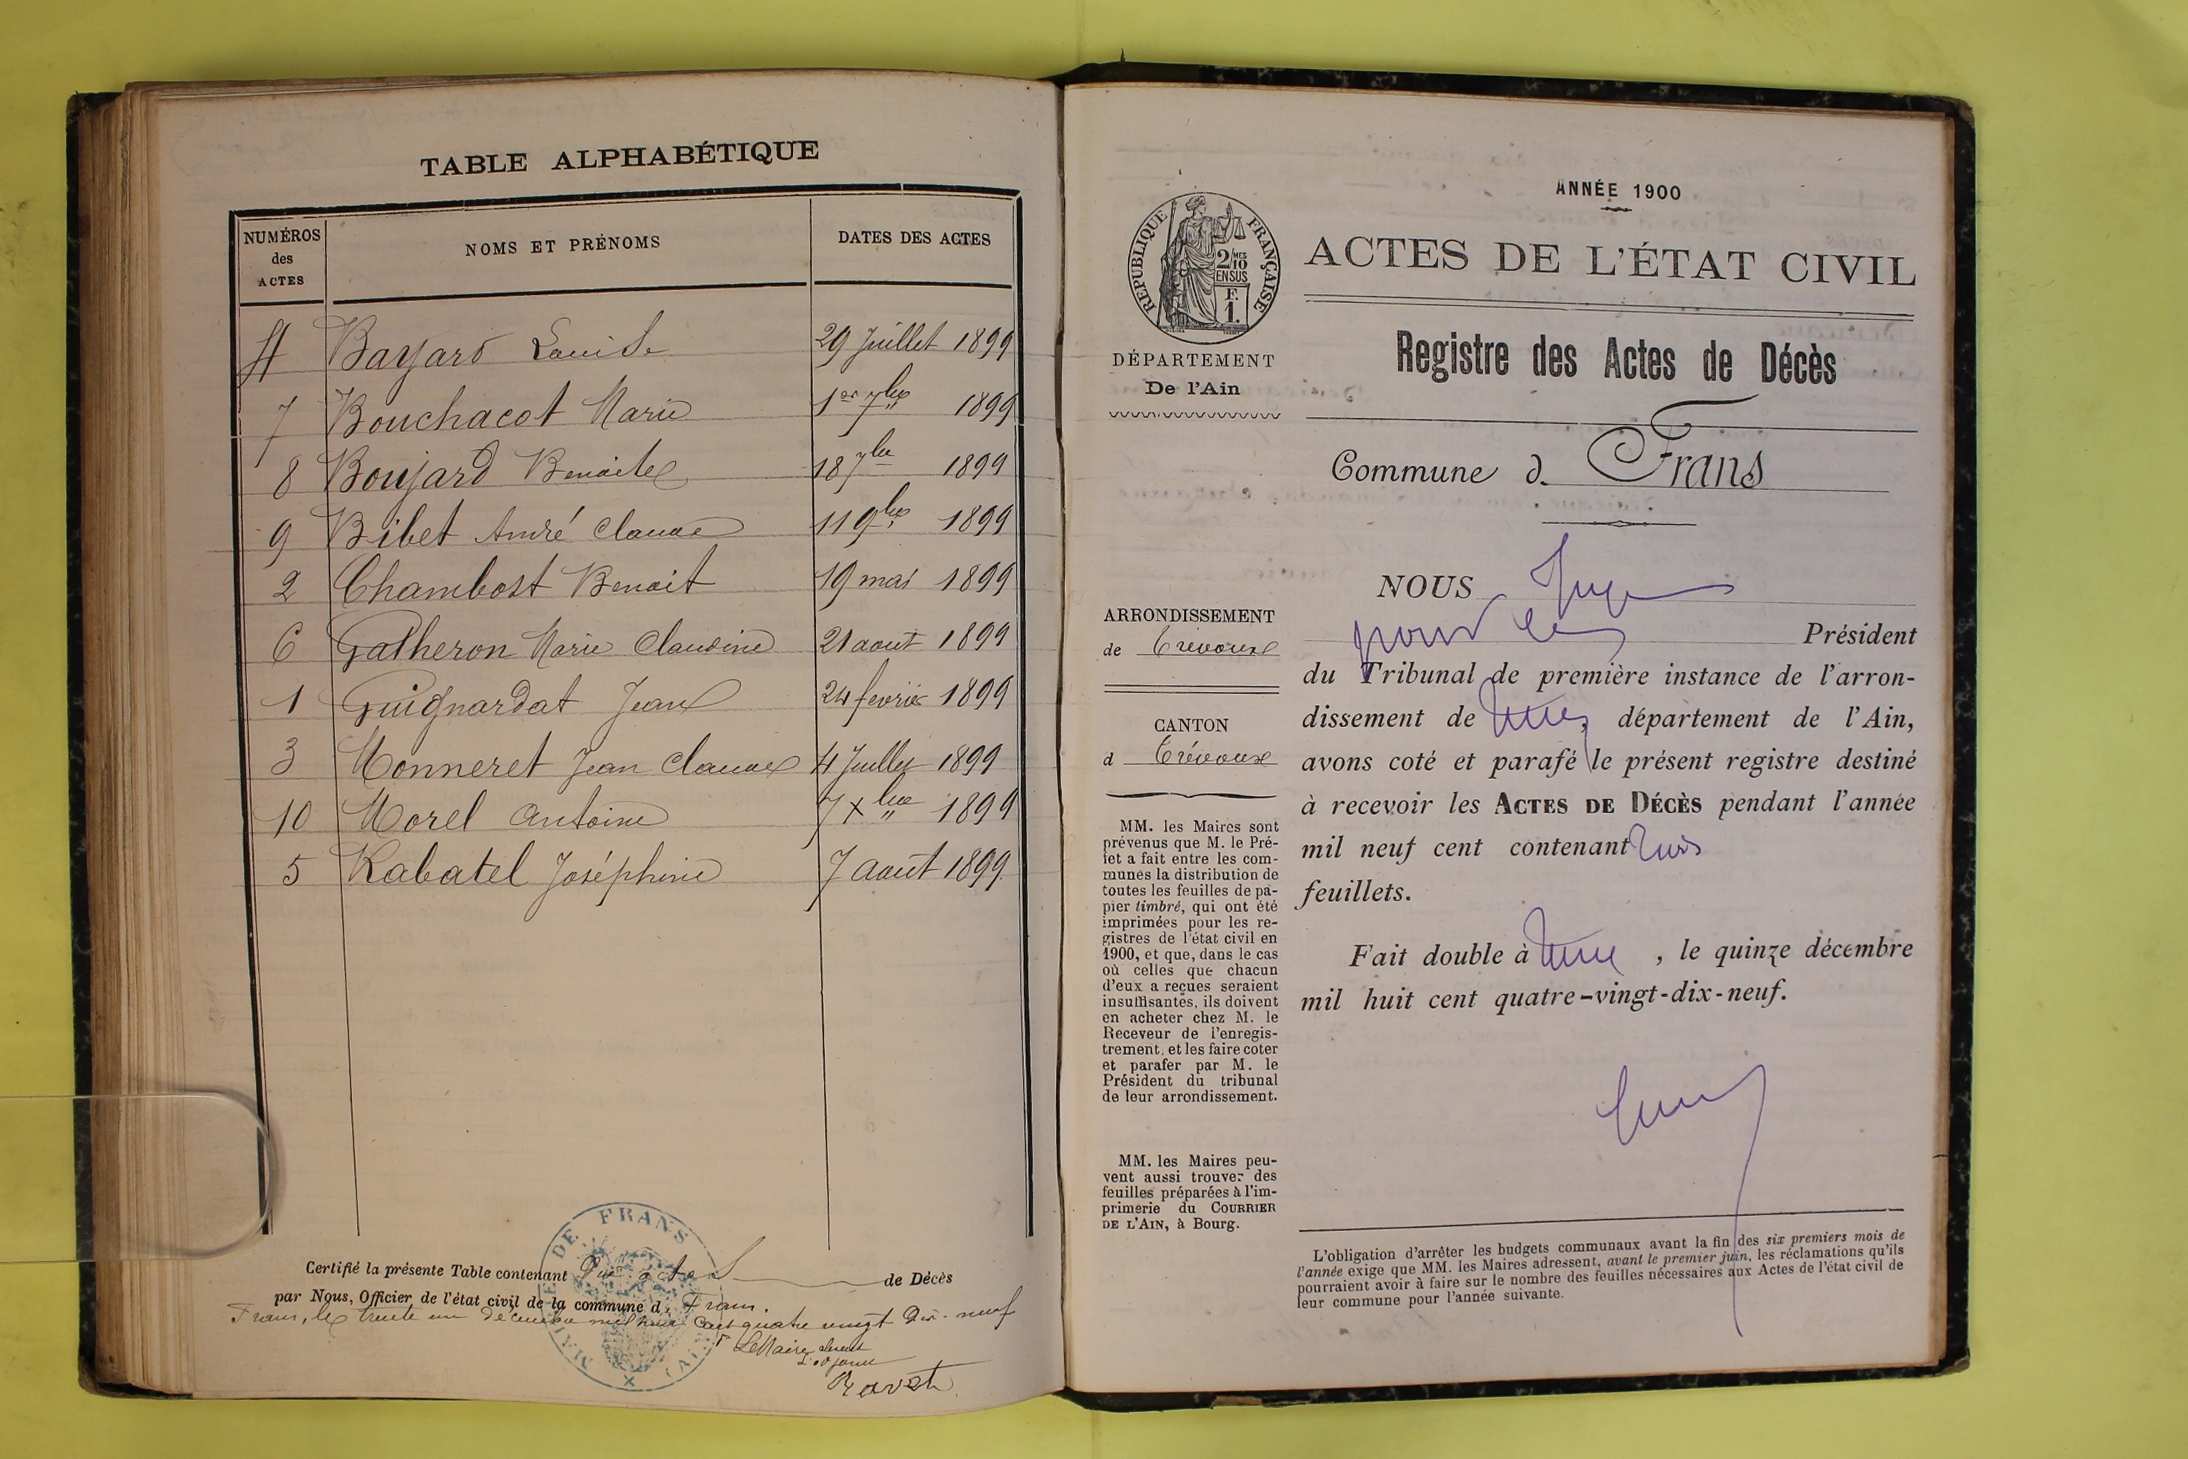 TABLE ALPHABÉTIQUE
NUMÉROS des ACTES
NOMS ET PRÉNOMS
DATES DES ACTES
4 Bayard Louise 29 Juillet 1899
7 Bouchacot Marie 1er 7bre 1899
8 Boujard Benoite 18 7bre 1899
9 Bibet André Claude 11 9bre 1899
2 Chambost Benoit 19 mai 1899
6 Gatheron Marie Claudine 21 aout 1899
1 Guignardat Jean 24 fevrier 1899
3 Monneret Jean Claude 4 Juillet 1899
10 Morel Antoine 7 Xbre 1899
5 Rabatel Joséphine 7 août 1899
Certifié la présente Table contenant actes de Décès
par Nous, Officier de l'état civil de la commune d Frans.
Frans, le trente un décembre mil huit cent quatre vingt dix-neuf
Le Maire
MAIRIE DE FRANS (AIN)
ANNÉE 1900
RÉPUBLIQUE FRANÇAISE
2/10 MES
EN SUS
F.
1.
ACTES DE L'ÉTAT CIVIL
Registre des Actes de Décès
DÉPARTEMENT
De l'Ain
Commune de Frans
ARRONDISSEMENT
de Trévoux
CANTON
d Trévoux
MM. les Maires sont
prévenus que M. le Pré-
fet a fait entre les com-
munes la distribution de
toutes les feuilles de pa-
pier timbré, qui ont été
imprimées pour les re-
gistres de l'état civil en
1900, et que, dans le cas
où celles que chacun
d'eux a reçues seraient
insuffisantes, ils doivent
en acheter chez M. le
Receveur de l'enregis-
trement, et les faire coter
et parafer par M. le
Président du tribunal
de leur arrondissement.
MM. les Maires peu-
vent aussi trouver des
feuilles préparées à l'im-
primerie du COURRIER
DE L'AIN, à Bourg.
NOUS Juge
pour le Président
du Tribunal de première instance de l'arron-
dissement de département de l'Ain,
avons coté et parafé le présent registre destiné
à recevoir les ACTES DE DÉCÈS pendant l'année
mil neuf cent contenant
feuillets.
Fait double à , le quinze décembre
mil huit cent quatre-vingt-dix-neuf.
L'obligation d'arrêter les budgets communaux avant la fin des six premiers mois de
l'année exige que MM. les Maires adressent, avant le premier juin, les réclamations qu'ils
pourraient avoir à faire sur le nombre des feuilles nécessaires aux Actes de l'état civil de
leur commune pour l'année suivante.